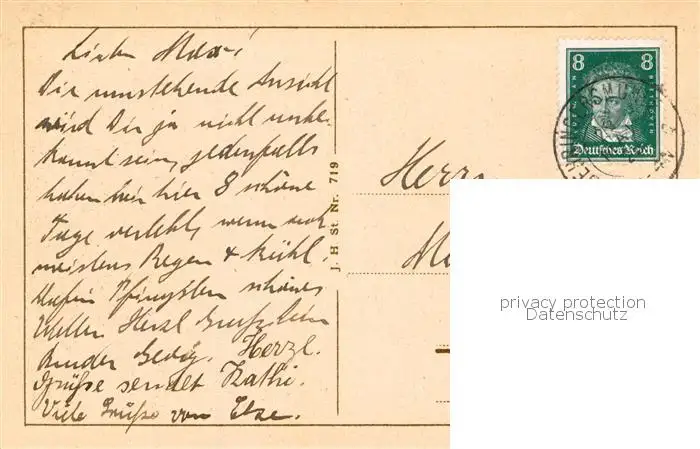 Lieber Max!
Die umstehende Ansicht
wird Dir ja nicht unbe-
kannt sein, jedenfalls
haben wir hier 8 schöne
Tage verlebt, wenn auch
meistens Regen & kühl.
Pfingsten schönes
Wetter. Herzl. Gruß
Bruder Georg. Herzl.
Grüße sendet Kathi.
Viele Grüße von Else.
J. H St. Nr. 719
Herrn
8 8
BEETHOVEN
Deutsches Reich
privacy protection
Datenschutz